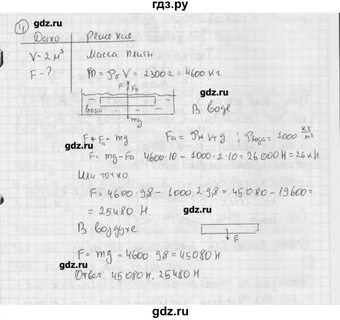 гдз.ру
gdz.ru
4
Дано Решение
V=2м³ Масса плиты
F-? m=ρ V=2300·2=4600кг
gdz.ru
F Fa
вода
mg
В воде
gdz.ru
F+Fa=mg Fa=ρж Vт g; ρвода=1000 кг/м³
F=mg-Fa 4600·10-1000·2·10=26000Н=26кН
gdz.ru
Или точно
F=4600·9,8-1000·2·9,8=45080-19600=
=25480 Н
gdz.ru
В воздухе
F
gdz.ru
F=mg=4600·9,8=45080Н
Ответ: 45080Н, 25480 Н
gdz.ru